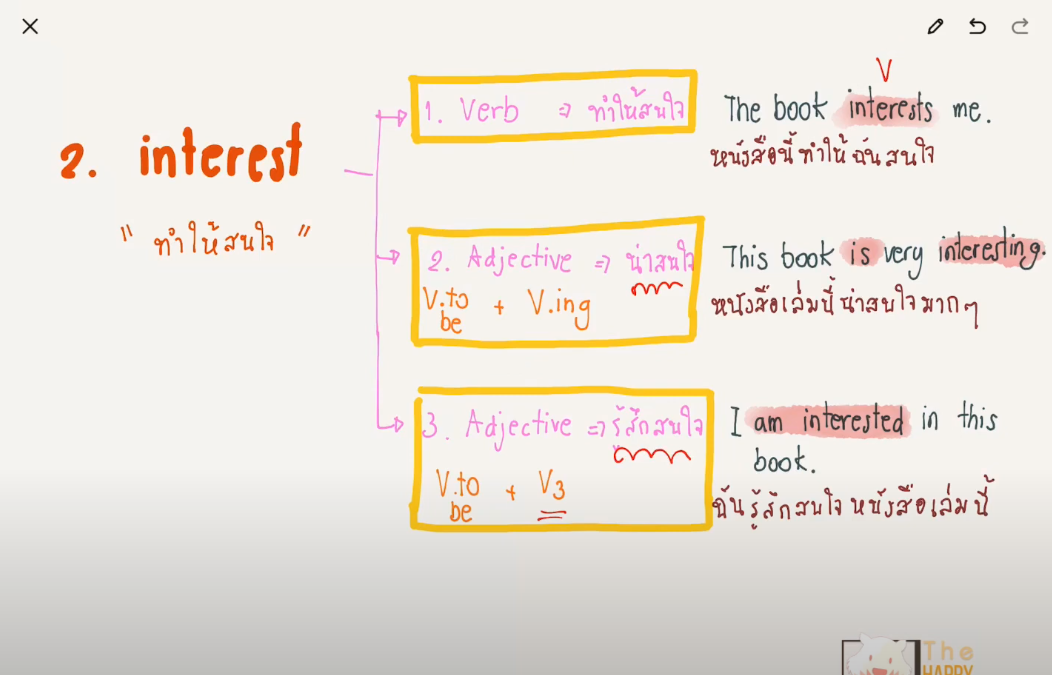 2. interest
" ทำให้สนใจ "
1. Verb ⇒ ทำให้สนใจ
V
The book interests me.
หนังสือนี้ทำให้ฉันสนใจ
2. Adjective ⇒ น่าสนใจ
V.to be + V.ing
This book is very interesting.
หนังสือเล่มนี้น่าสนใจมากๆ
3. Adjective ⇒ รู้สึกสนใจ
V.to be + V3
I am interested in this
book.
ฉันรู้สึกสนใจหนังสือเล่มนี้
The
HAPPY